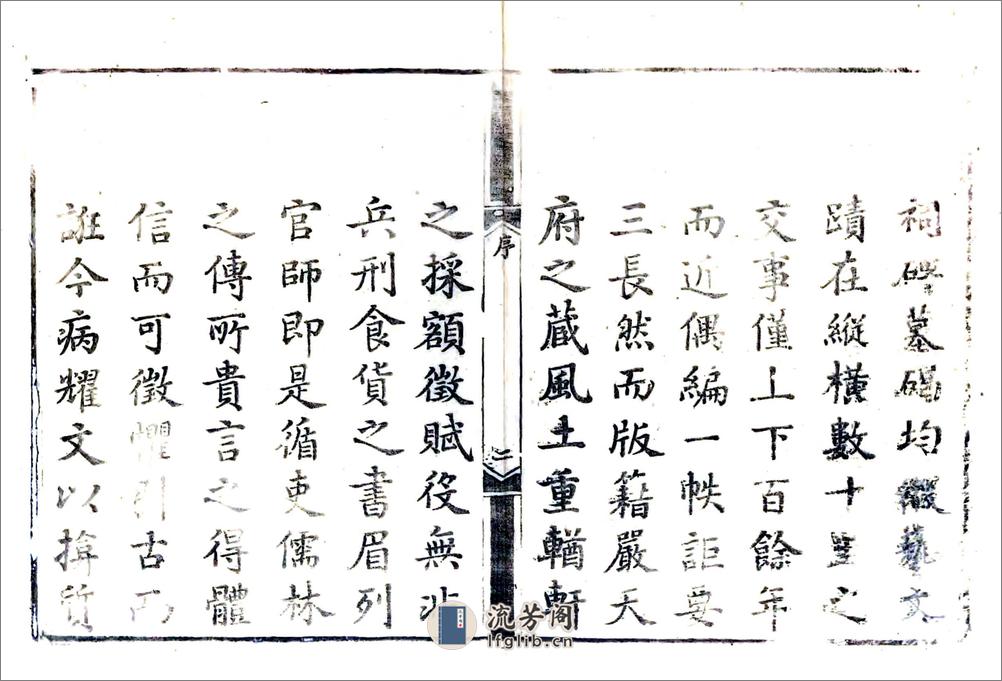 祠碑墓碣均綴藝文
蹟在縱橫數十里之
交事僅上下百餘年
而近偶編一帙詎要
三長然而版籍嚴天
府之蔵風土重輶軒
序
二
之採額徵賦役無非
兵刑食貨之書眉列
官師即是循吏儒林
之傳所貴言之得體
信而可徵懼引古而
誑今病耀文以揜質
流芳阁
lfglib.cn